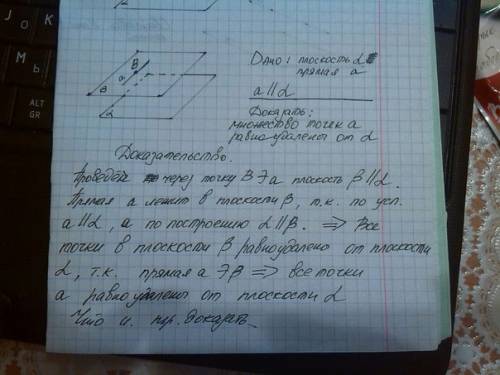 Дано: плоскость α
прямая a
a ∥ α
Доказать:
множество точек a
равноудалены от α
B
a
β
α
Доказательство.
Проведём через точку B ∋ a плоскость β ∥ α.
Прямая a лежит в плоскости β, т.к. по усл.
a ∥ α, а по построению α ∥ β. ⇒ Все
точки в плоскости β равноудалено от плоскости
α, т.к. прямая a ∋ β ⇒ все точки
a равноудалены от плоскости α
Что и. тр. доказать.
J
O
K
М
Ь
ALT
GR